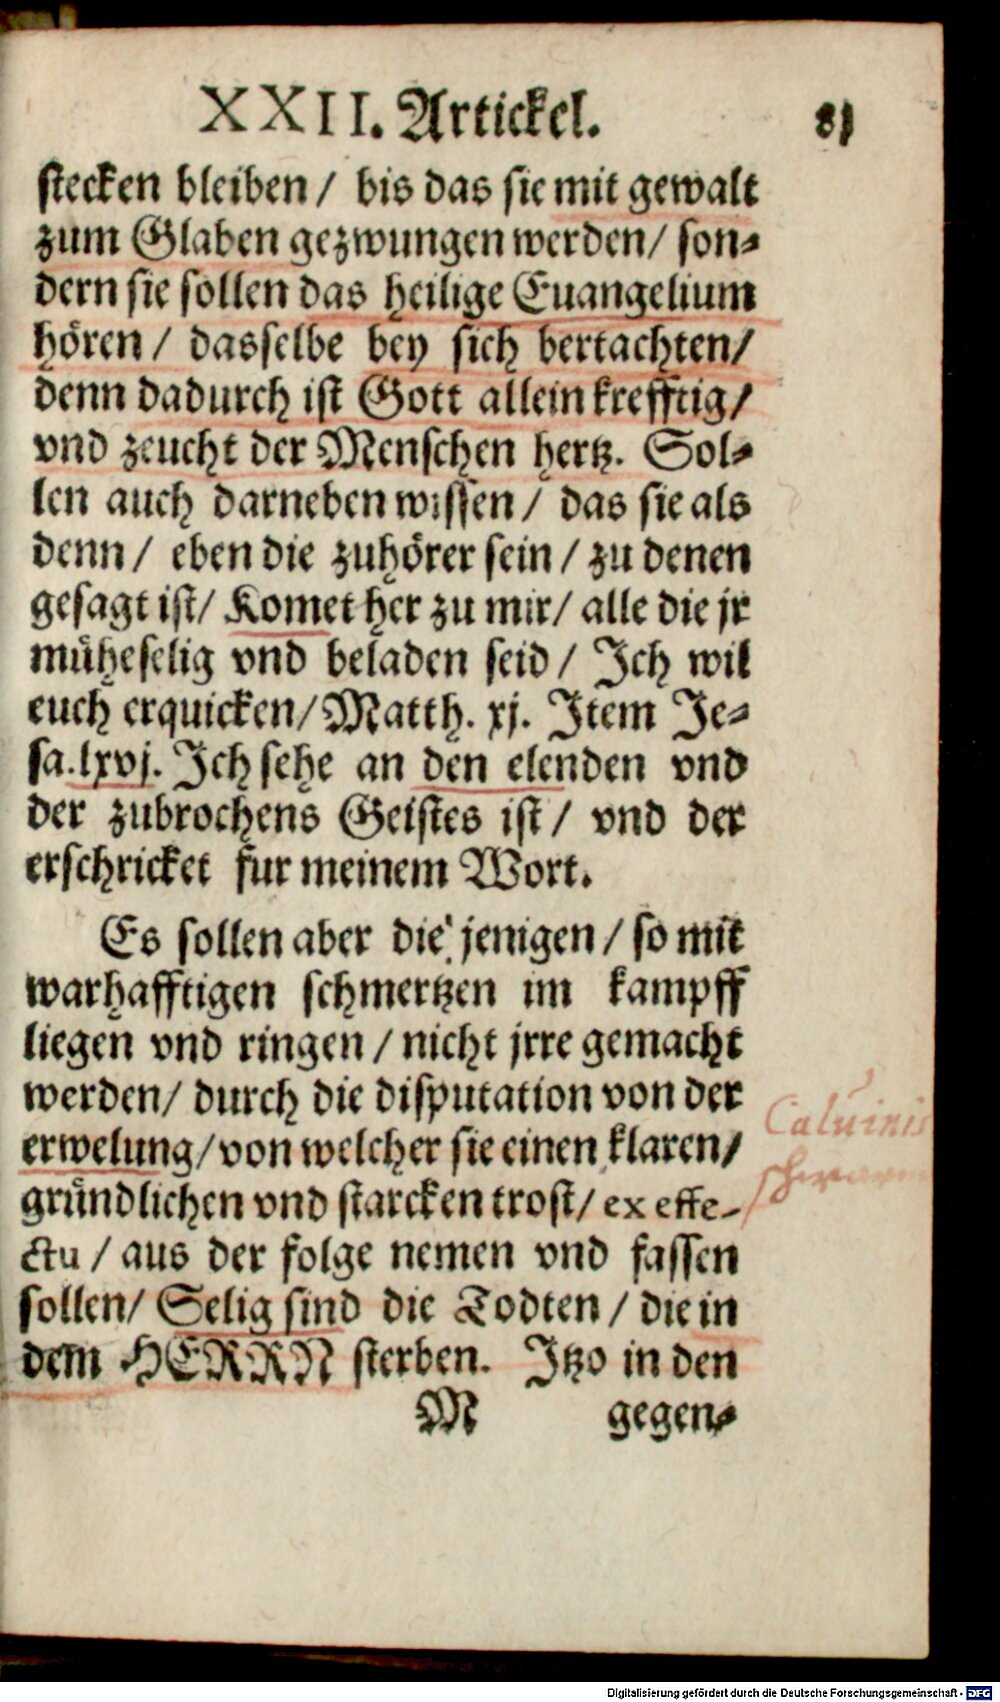 XXII. Artickel. 81
stecken bleiben / bis das sie mit gewalt
zum Glaben gezwungen werden / son-
dern sie sollen das heilige Euangelium
hören / dasselbe bey sich bertachten /
denn dadurch ist Gott allein krefftig /
vnd zeucht der Menschen hertz. Sol-
len auch darneben wissen / das sie als
denn / eben die zuhörer sein / zu denen
gesagt ist / Komet her zu mir / alle die jr
müheselig vnd beladen seid / Ich wil
euch erquicken / Matth. xj. Item Je-
sa. lxvj. Ich sehe an den elenden vnd
der zubrochens Geistes ist / vnd der
erschricket fur meinem Wort.
Es sollen aber die jenigen / so mit
warhafftigen schmertzen im kampff
liegen vnd ringen / nicht jrre gemacht
werden / durch die disputation von der
erwelung / von welcher sie einen klaren /
gründlichen vnd starcken trost / ex effe-
ctu / aus der folge nemen vnd fassen
sollen / Selig sind die Todten / die in
dem HERRN sterben. Itzo in den
M gegen-
Caluinis
Digitalisierung gefördert durch die Deutsche Forschungsgemeinschaft - DFG